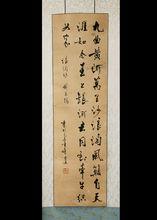 九曲黄河萬里沙浪淘風簸自天
涯如今直上銀河去同到牽牛織
女家
浪淘沙